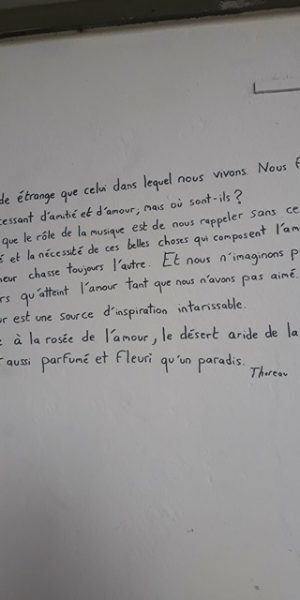 de étrange que celui dans lequel nous vivons. Nous
cessant d'amitié et d'amour, mais où sont-ils?
que le rôle de la musique est de nous rappeler sans ce
é et la nécessité de ces belles choses qui composent l'am
eur chasse toujours l'autre. Et nous n'imaginons p
rs qu'atteint l'amour tant que nous n'avons pas aimé.
ur est une source d'inspiration intarissable.
e à la rosée de l'amour, le désert aride de la
aussi parfumé et fleuri qu'un paradis.
Thoreau